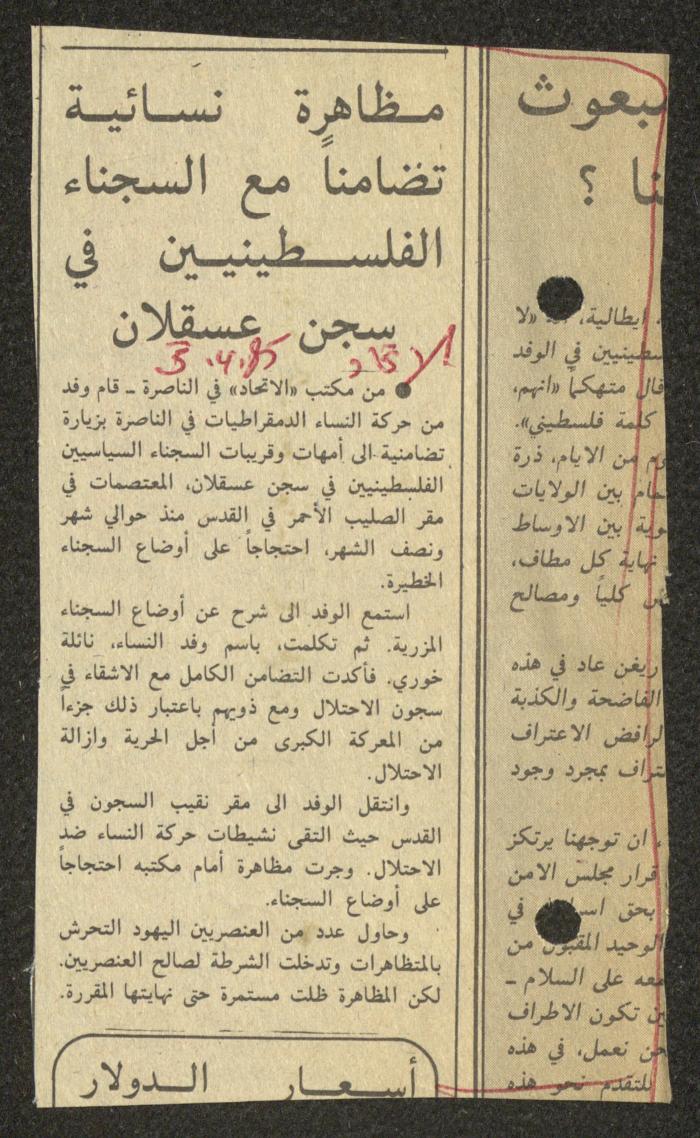 مظاهرة نسائية
تضامناً مع السجناء
الفلسطينيين في
سجن عسقلان
الاتحاد 3.4.85
● من مكتب «الاتحاد» في الناصرة ـ قام وفد
من حركة النساء الدمقراطيات في الناصرة بزيارة
تضامنية الى أمهات وقريبات السجناء السياسيين
الفلسطينيين في سجن عسقلان، المعتصمات في
مقر الصليب الأحمر في القدس منذ حوالي شهر
ونصف الشهر، احتجاجاً على أوضاع السجناء
الخطيرة.
استمع الوفد الى شرح عن أوضاع السجناء
المزرية. ثم تكلمت، باسم وفد النساء، نائلة
خوري. فأكدت التضامن الكامل مع الاشقاء في
سجون الاحتلال ومع ذويهم باعتبار ذلك جزءاً
من المعركة الكبرى من أجل الحرية وازالة
الاحتلال.
وانتقل الوفد الى مقر نقيب السجون في
القدس حيث التقى نشيطات حركة النساء ضد
الاحتلال. وجرت مظاهرة أمام مكتبه احتجاجاً
على أوضاع السجناء.
وحاول عدد من العنصريين اليهود التحرش
بالمتظاهرات وتدخلت الشرطة لصالح العنصريين.
لكن المظاهرة ظلت مستمرة حتى نهايتها المقررة.
أسعار الدولار
مبعوث
نا ؟
ايطالية، «لا
سطينيين في الوفد
قال متهكماً «انهم،
كلمة فلسطيني».
من الايام، ذرة
بين الولايات
بين الاوساط
نهاية كل مطاف،
كلياً ومصالح
ريغن عاد في هذه
الفاضحة والكذبة
لرافض الاعتراف
بمجرد وجود
، ان توجهنا يرتكز
قرار مجلس الامن
بحق في
الوحيد المقبول من
معه على السلام ـ
تكون الاطراف
نعمل، في هذه
للتقدم نحو هذه